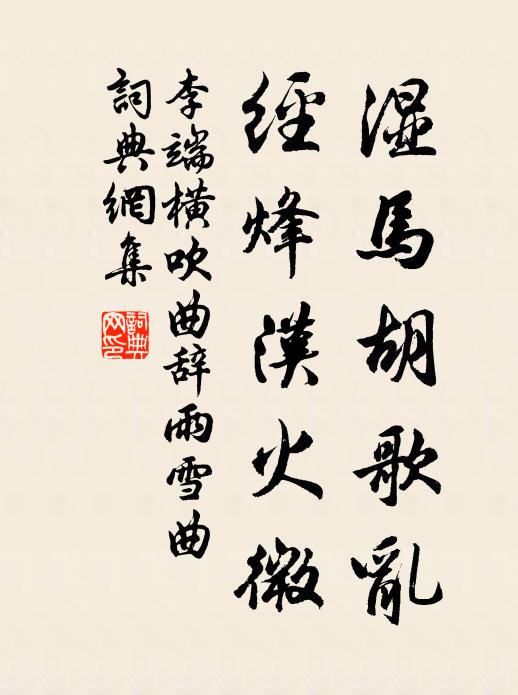 濕馬胡歌亂
經烽漢火微
李端橫吹曲辞雨雪曲
詞典網集
詞典
网印